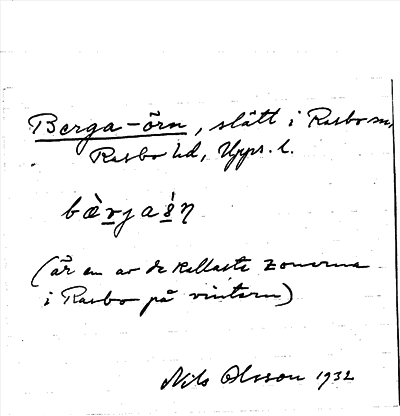 Berga-örn, slätt i Rasbo sn,
Rasbo hd, Upps. l.
(är en av de kallaste zonerna
i Rasbo på vintern)
Nils Olsson 1932